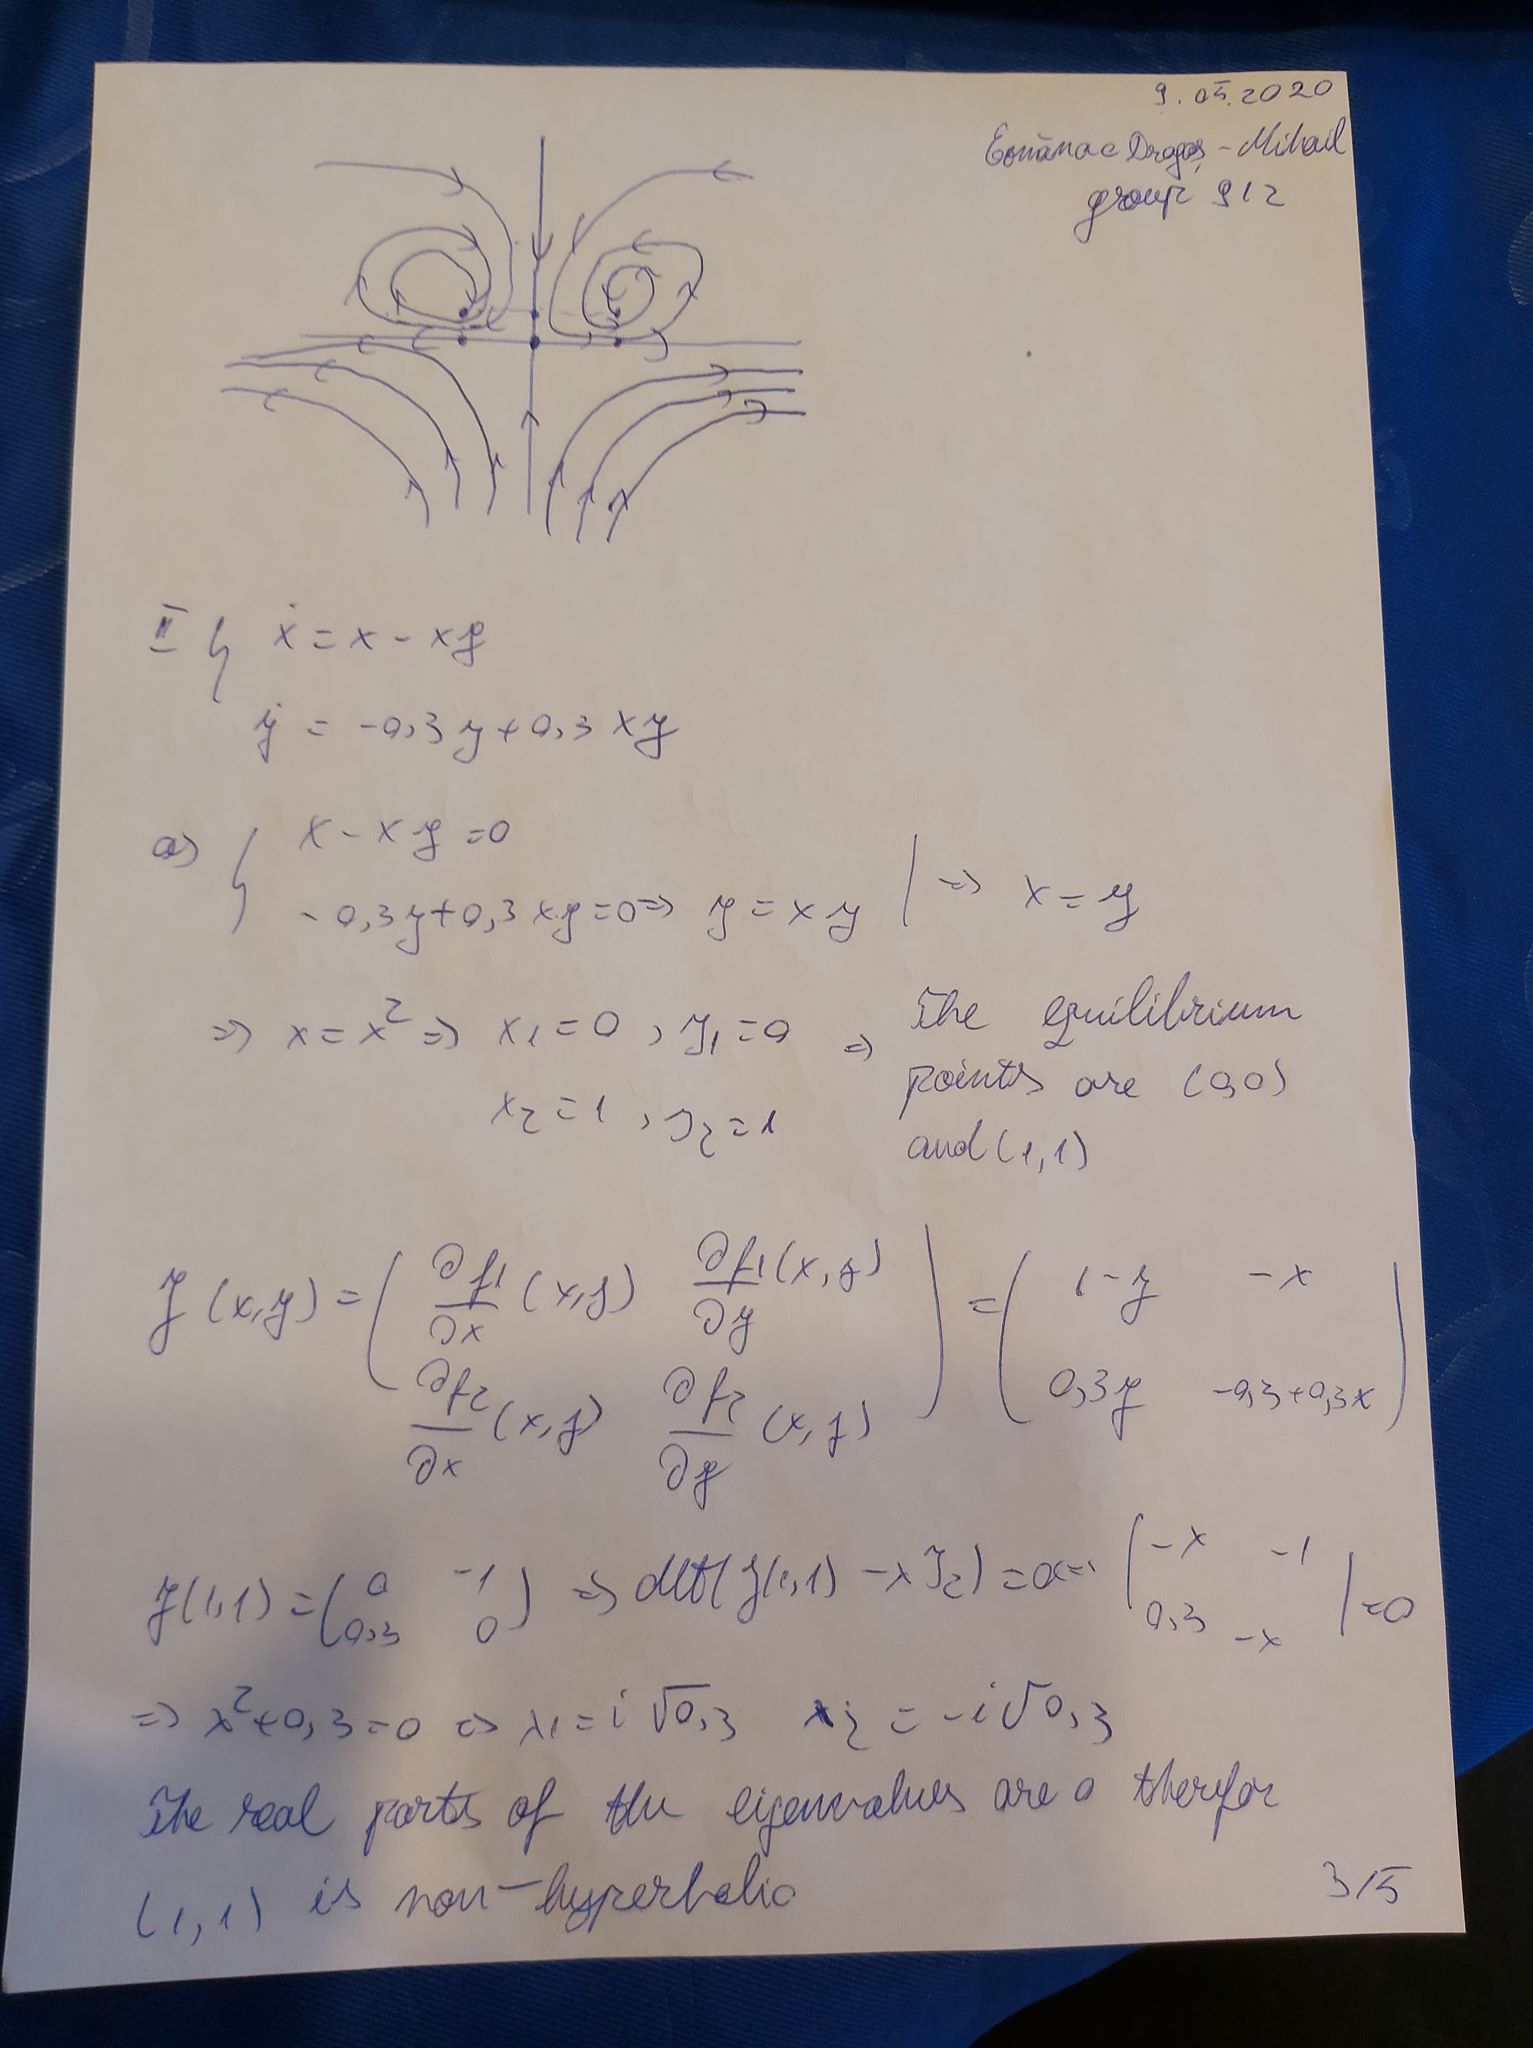 9.05.2020
Dragoș-Mihail
group 912
II { ẋ = x - xy
ẏ = -0,3y + 0,3xy
a) { x - xy = 0
-0,3y + 0,3xy = 0 => y = xy | => x = y
=> x = x² => x₁ = 0, y₁ = 0 => The equilibrium
points are (0,0)
x₂ = 1, y₂ = 1
and (1,1)
J(x,y) = ( ∂f₁/∂x (x,y) ∂f₁/∂y (x,y) ) = ( 1-y -x )
( ∂f₂/∂x (x,y) ∂f₂/∂y (x,y) ) ( 0,3y -0,3+0,3x )
J(1,1) = ( 0 -1 ) => det(J(1,1) - λI₂) = 0 => | -λ -1 | = 0
( 0,3 0 ) | 0,3 -λ |
=> λ² + 0,3 = 0 => λ₁ = i√0,3 λ₂ = -i√0,3
The real parts of the eigenvalues are 0 therefor
(1,1) is non-hyperbolic
3/5